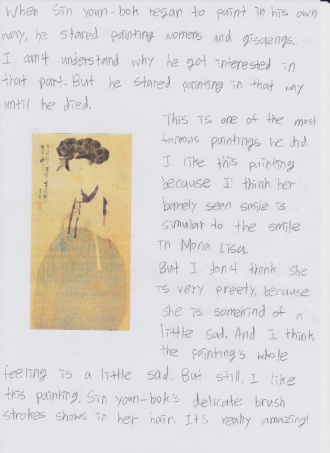 When Sin youn-bok began to paint in his own
way, he stared painting womens and gisaengs.
I can't understand why he got interested in
that part. But he stared painting in that way
until he died.
This is one of the most
famous paintings he did.
I like this painting
because I think her
barely seen smile is
simular to the smile
in Mona Lisa.
But I don't think she
is very preety, because
she is somekind of a
little sad. And I think
the painting's whole
feeling is a little sad. But still, I like
this painting. Sin youn-bok's delicate brush
strokes shows in her hair. It's really amazing!